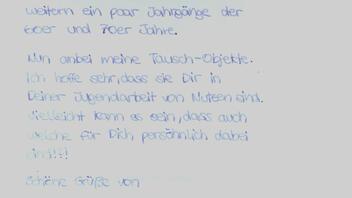 weitern ein paar Jahrgänge der
60er und 70er Jahre.
Nun anbei meine Tausch-Objekte.
Ich hoffe sehr, dass sie Dir in
Deiner Jugendarbeit von Nutzen sind.
Vielleicht kann es sein, dass auch
welche für Dich persönlich dabei
sind!!!
Schöne Grüße von